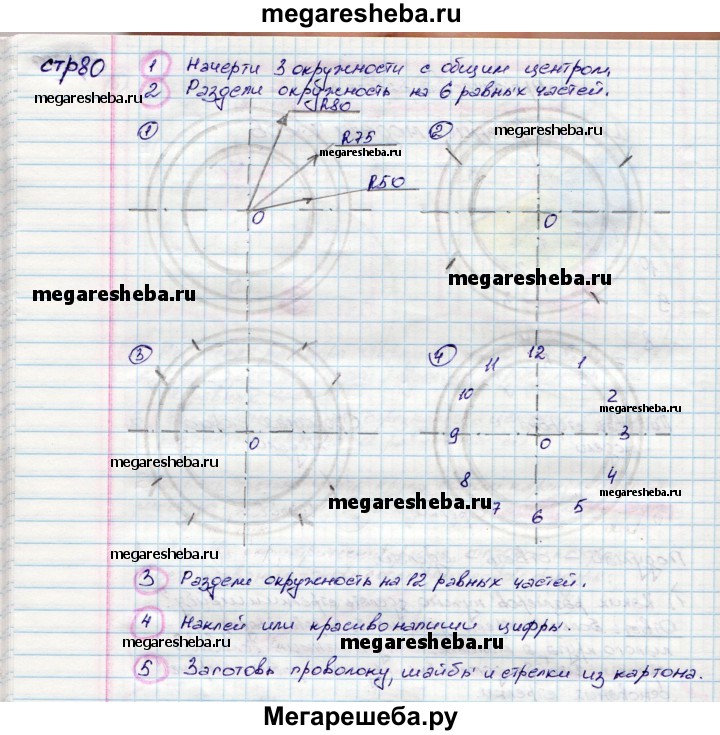 megaresheba.ru
стр80
1 Начерти 3 окружности с общим центром,
2 Раздели окружность на 6 равных частей.
megaresheba.ru
R80
1
R75
megaresheba.ru
R50
O
2
megaresheba.ru
O
megaresheba.ru
megaresheba.ru
3
megaresheba.ru
O
megaresheba.ru
4
12
11
1
10
2
megaresheba.ru
9
O
3
8
4
megaresheba.ru
7
5
6
megaresheba.ru
megaresheba.ru
3 Раздели окружность на 12 равных частей.
4 Наклей или красиво напиши цифры.
megaresheba.ru
megaresheba.ru
5 Заготовь проволоку, шайбы и стрелки из картона.
Мегарешеба.ру